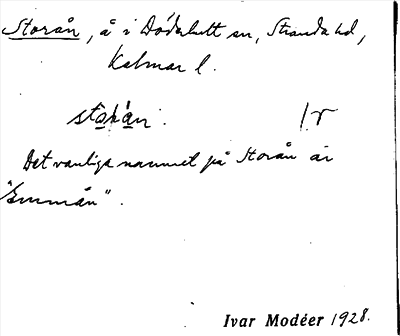 Storån, å i Döderhult sn, Stranda hd,
Kalmar l.
1r
Det vanliga namnet på Storån är
"Emmån".
Ivar Modéer 1928.